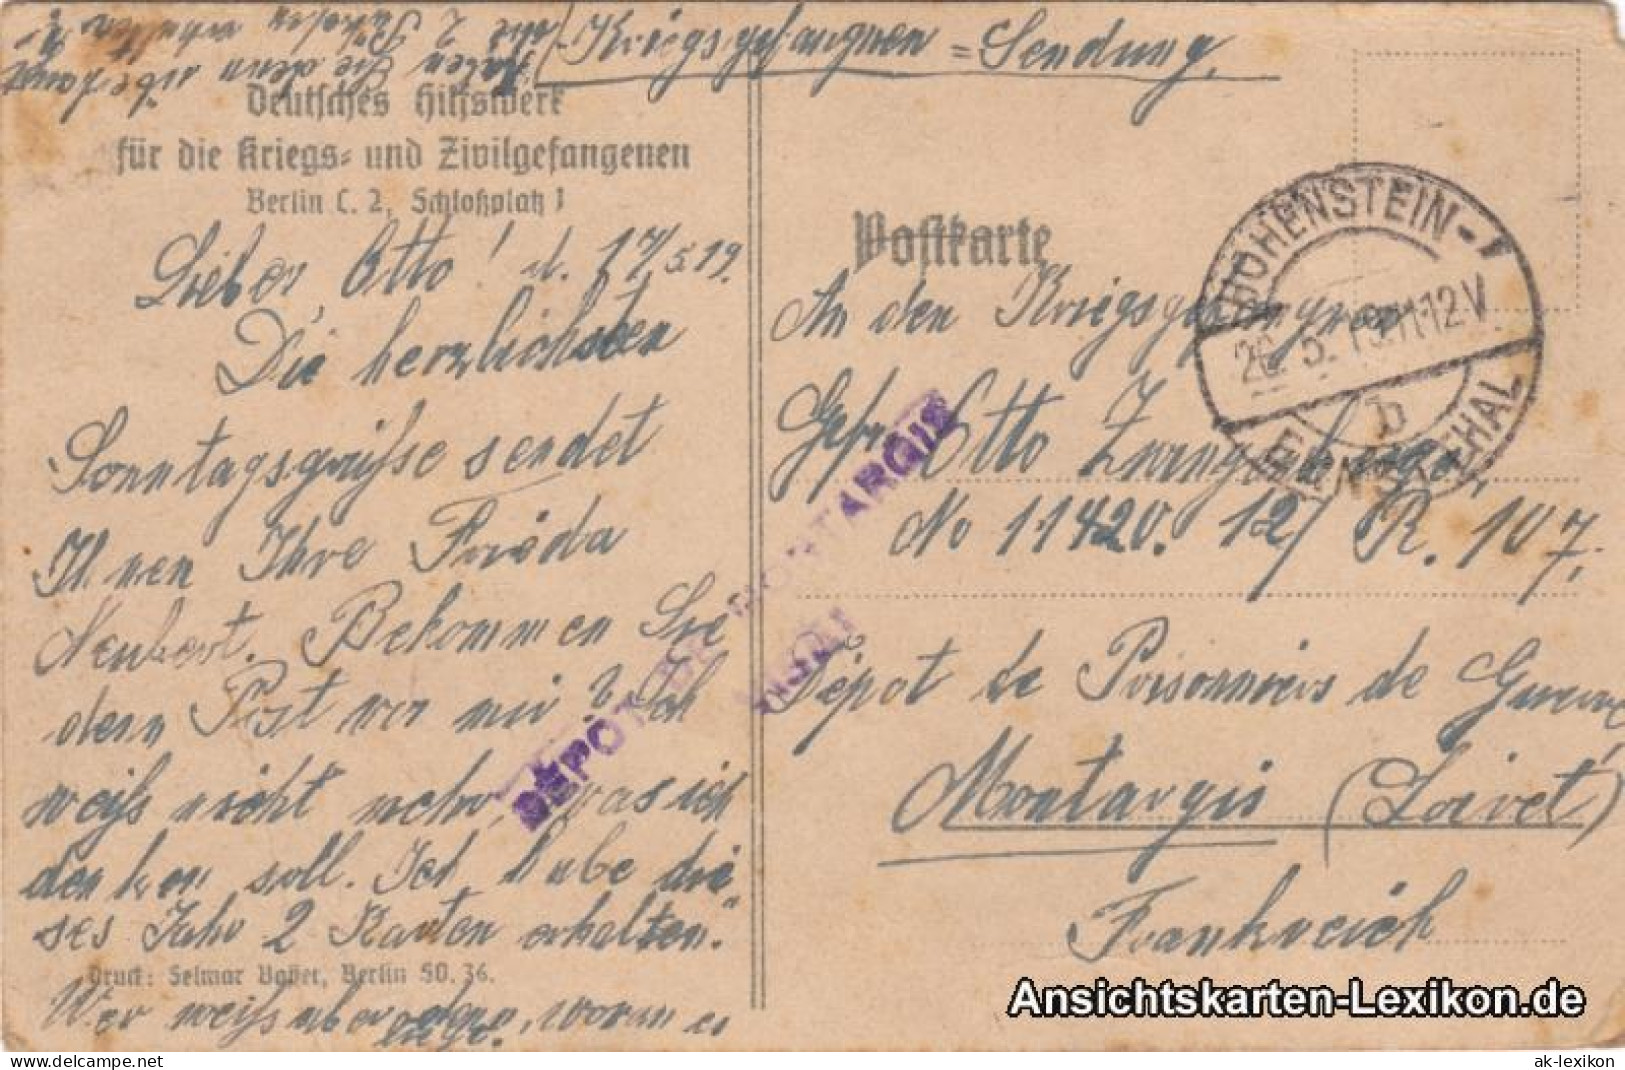 Kriegsgefangnen = Sendung.
haben Sie denn überhaupt
die 2 Päckchen erhalten
Deutsches Hilfswerk
für die Kriegs- und Zivilgefangenen
Berlin C. 2, Schloßplatz 1
Lieber Otto! d. 17/5.19.
Die herzlichsten
Sonntagsgrüsse sendet
Ihnen Ihre Frieda
Neubert. Bekommen Sie
denn Post von mir? Ich
weiss nicht mehr, was ich
denken soll. Ich habe die-
ses Jahr 2 Karten erhalten.
Druck: Selmar Bayer, Berlin SO. 36.
Wer weiss aber denn, woran es
liegt.
Postkarte
HOHENSTEIN-
20.5.19.11-12V.
b
ERNSTTHAL
An den Kriegsgefangnen
Gefr. Otto
No 11420. 12/ R. 107.
Dépot de Prisonniers de Guerre
Montargis (Loiret)
Frankreich
DÉPOT DE MONTARGIS
Ansichtskarten-Lexikon.de
ak-lexikon